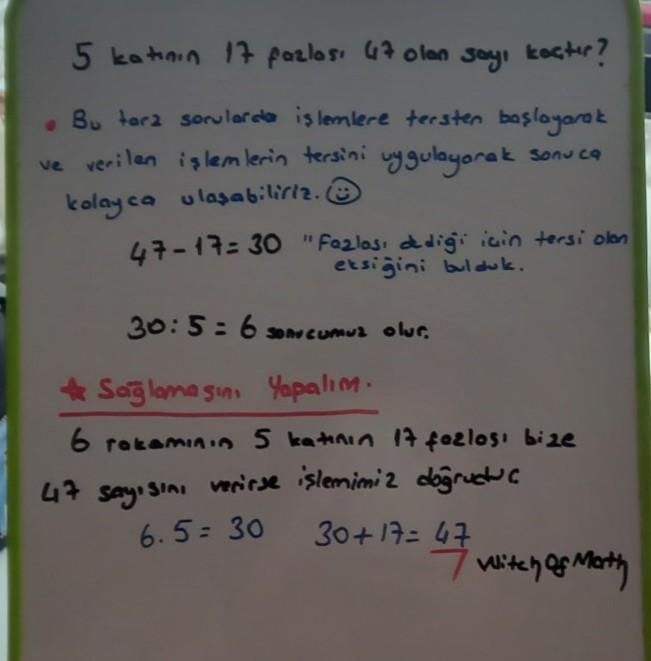 5 katının 17 fazlası 47 olan sayı kaçtır?
• Bu tarz sorularda işlemlere tersten başlayarak
ve verilen işlemlerin tersini uygulayarak sonuca
kolayca ulaşabiliriz. ☺
47 - 17 = 30 "Fazlası dediği için tersi olan
eksiğini bulduk.
30 : 5 = 6 sonucumuz olur.
★ Sağlamasını Yapalım.
6 rakamının 5 katının 17 fazlası bize
47 sayısını verirse işlemimiz doğrudur
6 . 5 = 30 30 + 17 = 47
Witch Of Math